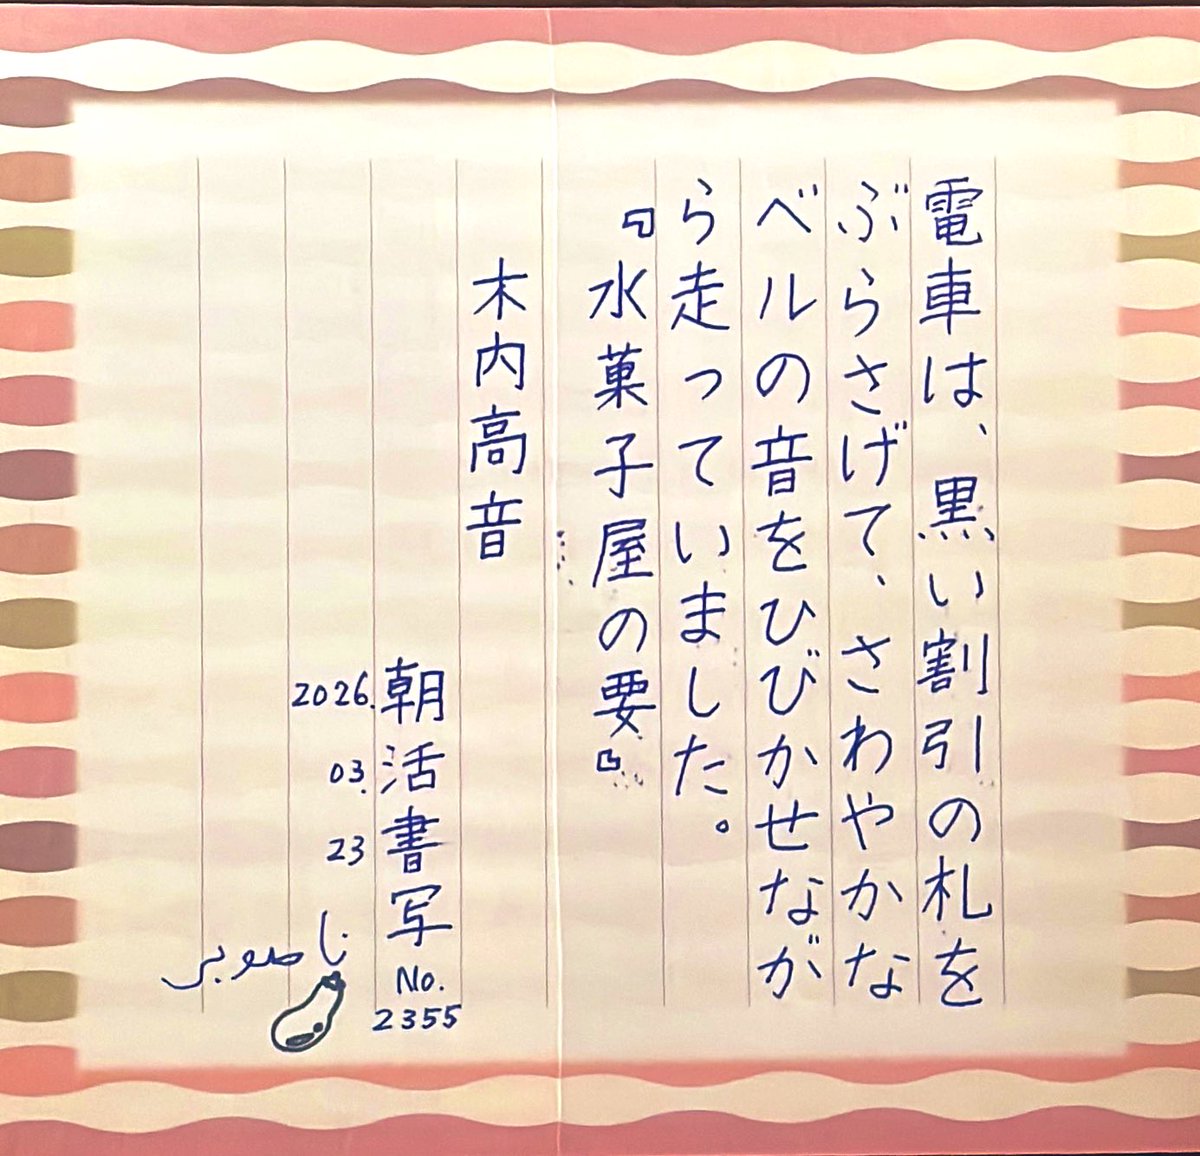 電車は、黒い割引の札を
ぶらさげて、さわやかな
ベルの音をひびかせなが
ら走っていました。
『水菓子屋の要』
木内高音
朝活書写 No. 2355
2026. 03. 23